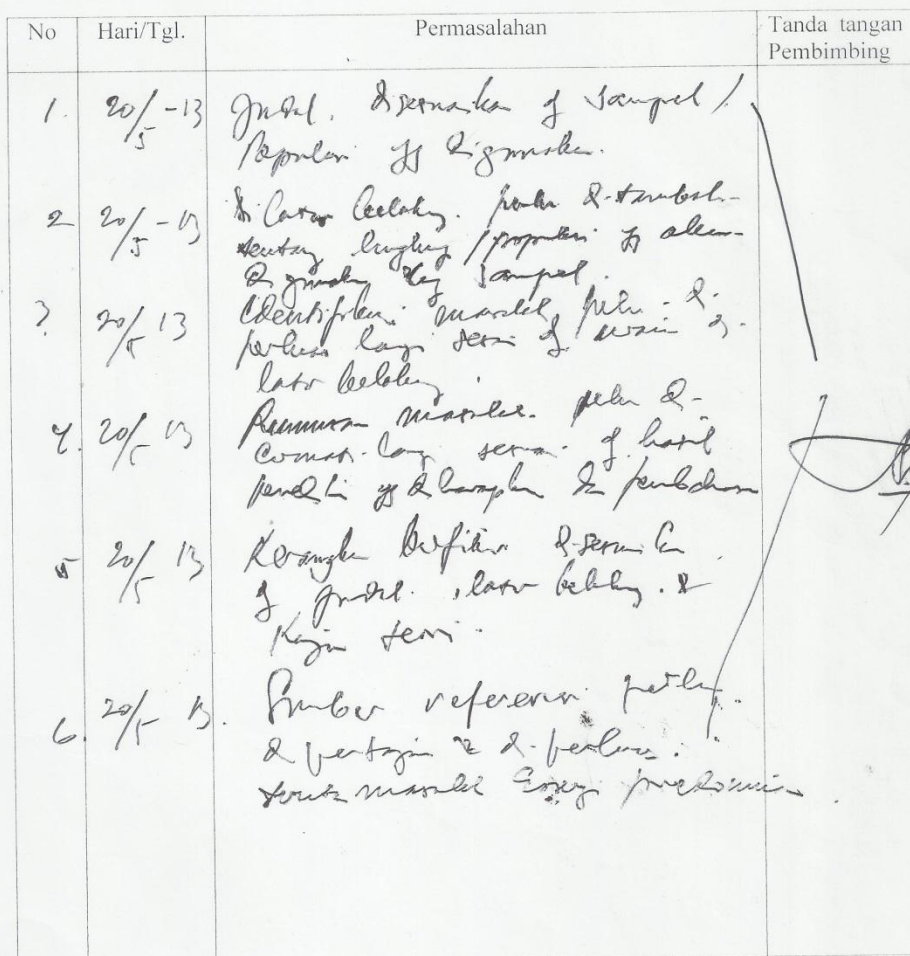 No Hari/Tgl. Permasalahan Tanda tangan
Pembimbing
1. 20/5-13 Judul. disesuaikan dg sampel /
Populasi yg digunakan.
2 20/5-13 di latar belakang. perlu di-tambah-
tentang / populasi yg akan
digunakan sbg sampel.
3 20/5 13 Identifikasi masalah perlu di-
perluas lagi sesuai dg di-
latar belakang.
4. 20/5 13 Rumusan masalah. perlu di-
lagi sesuai dg hasil
yg diharapkan
5 20/5 13 Kerangka berfikir disesuaikan
dg judul. latar belakang. &
Kajian teori.
6. 20/5 13. Sumber referensi perlu
di pertajam & di-perluas.
masalah